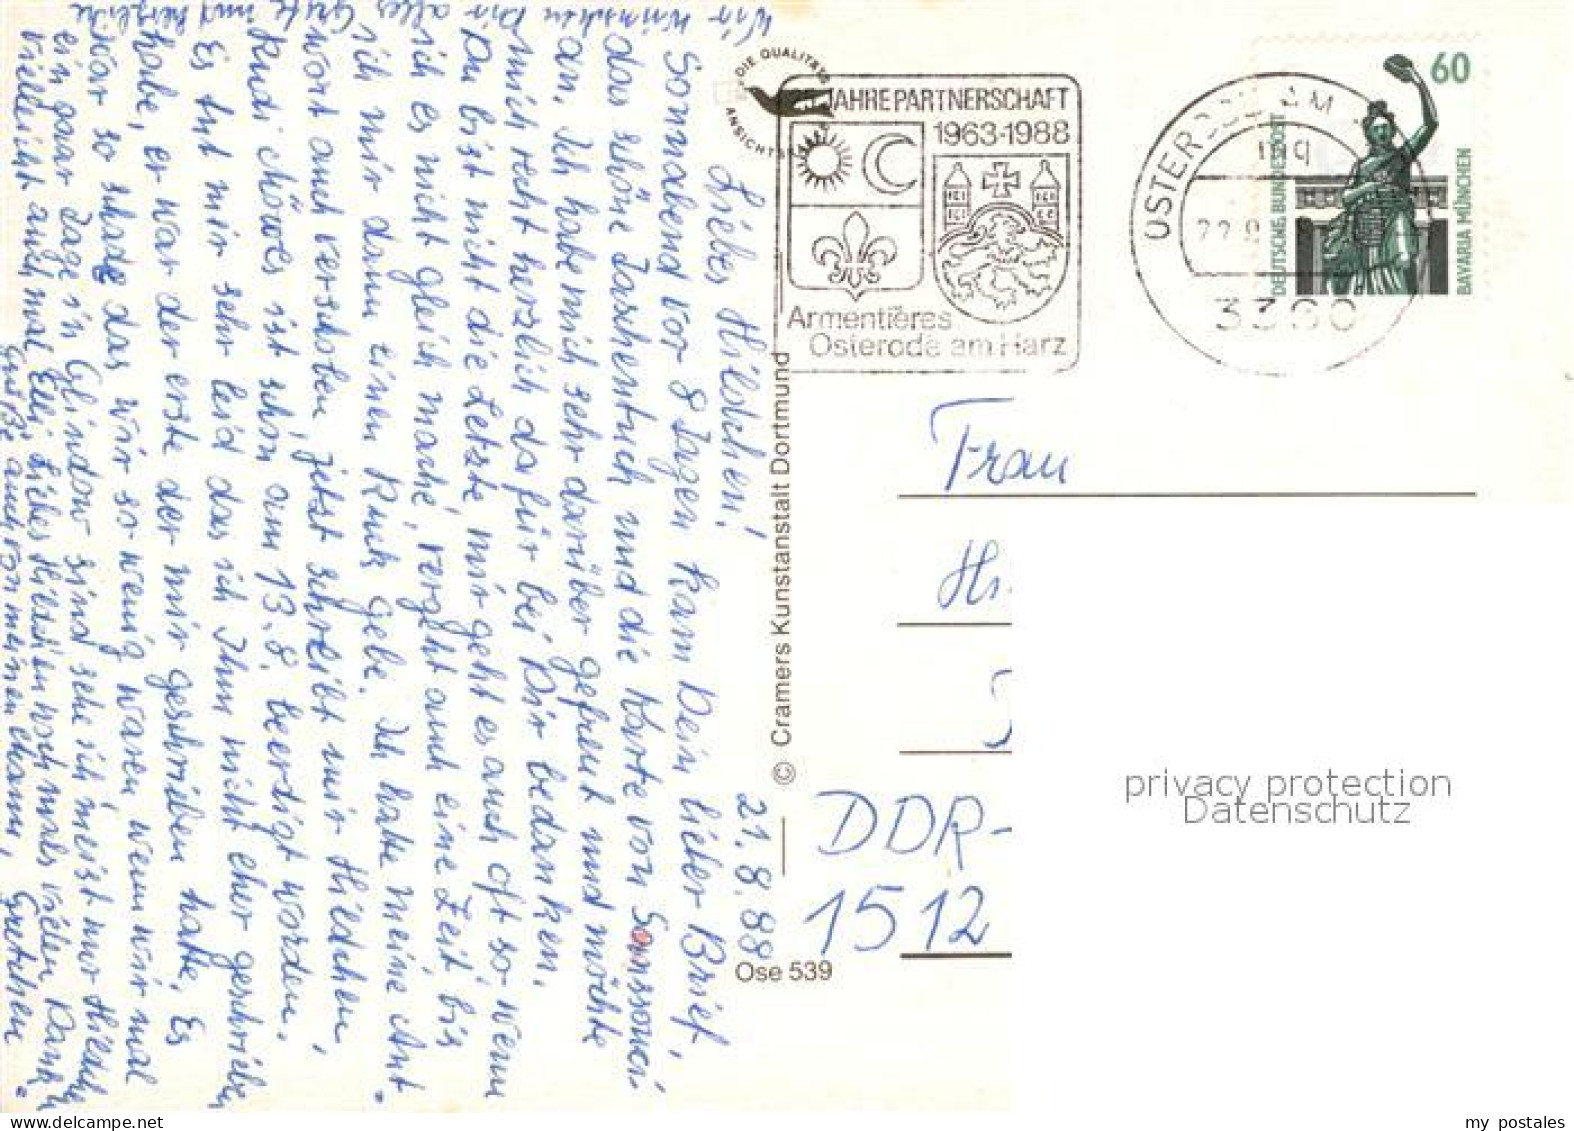 21.8.88
Liebes Hildchen!
Sonnabend vor 8 Tagen kam Dein lieber Brief,
das schöne Taschentuch und die Karte von Sanssouci
an. Ich habe mich sehr darüber gefreut und möchte
mich recht herzlich dafür bei Dir bedanken.
Du bist nicht die Letzte, mir geht es auch oft so wenn
ich es nicht gleich mache, vergeht auch eine Zeit bis
ich mir dann einen Ruck gebe. Ich hatte meine Ant-
wort auch verschoben, jetzt schreibt mir Hildchen,
Rudi Möwes ist schon am 13.8. beerdigt worden.
Es tut mir sehr leid das ich Ihm nicht eher geschrieben
habe, er war der erste der mir geschrieben hatte. Es
war so schade das wir so wenig waren, wenn wir mal
ein paar Tage in Glindow sind sehe ich meist nur Hildchen
vielleicht auch mal Elli. Liebes Hildchen nochmals vielen Dank
Grüße auch von meinen Mann, Gretchen
Wir wünschen Dir alles Gute und herzliche
DIE QUALITÄTS
ANSICHTSKARTE
25 JAHRE PARTNERSCHAFT
1963-1988
Armentières
Osterode am Harz
OSTERODE AM
22.8
3360
60
DEUTSCHE BUNDESPOST
BAVARIA MÜNCHEN
© Cramers Kunstanstalt Dortmund
Ose 539
Frau
DDR-
1512
privacy protection
Datenschutz
my postales